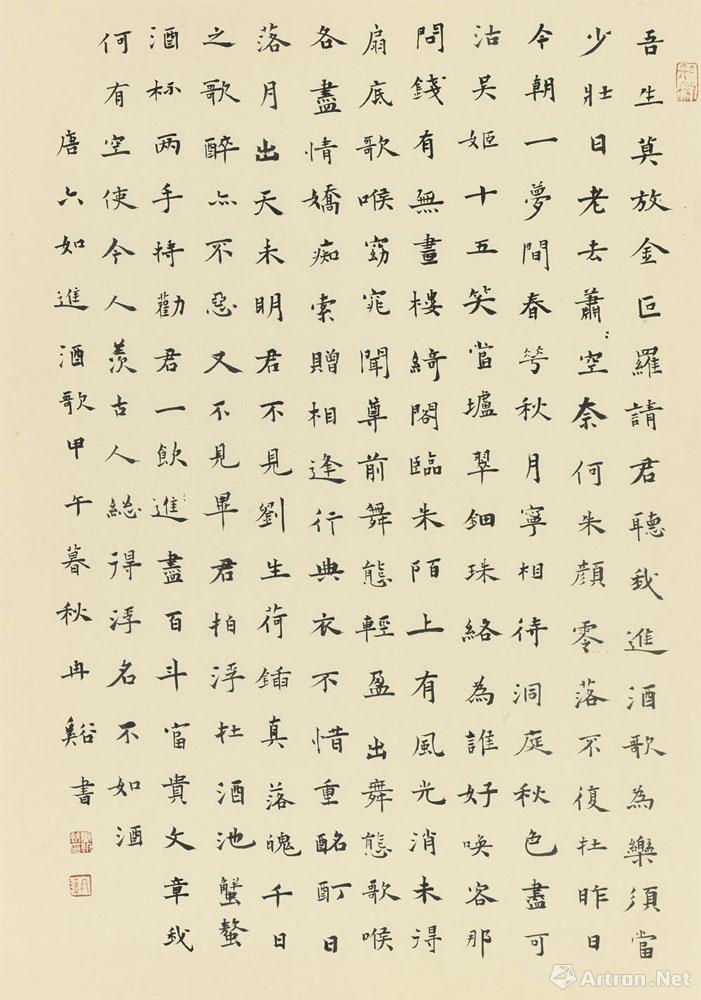 吾生莫放金叵羅請君聽我進酒歌為樂須當
少壯日老去蕭〻空奈何朱顏零落不復在昨日
今朝一夢間春花秋月寧相待洞庭秋色盡可
沽吳姬十五笑當壚翠鈿珠絡為誰好喚客那
問錢有無畫樓綺閣臨朱陌上有風光消未得
扇底歌喉窈窕聞尊前舞態輕盈出舞態歌喉
各盡情嬌痴索贈相逢行典衣不惜重酩酊日
落月出天未明君不見劉生荷鍤真落魄千日
之歌醉亦不惡又不見畢君拍浮在酒池蟹螯
酒杯兩手持勸君一飲進盡百斗富貴文章我
何有空使今人羨古人總得浮名不如酒
唐六如進酒歌甲午暮秋冉谿書
Artron.Net